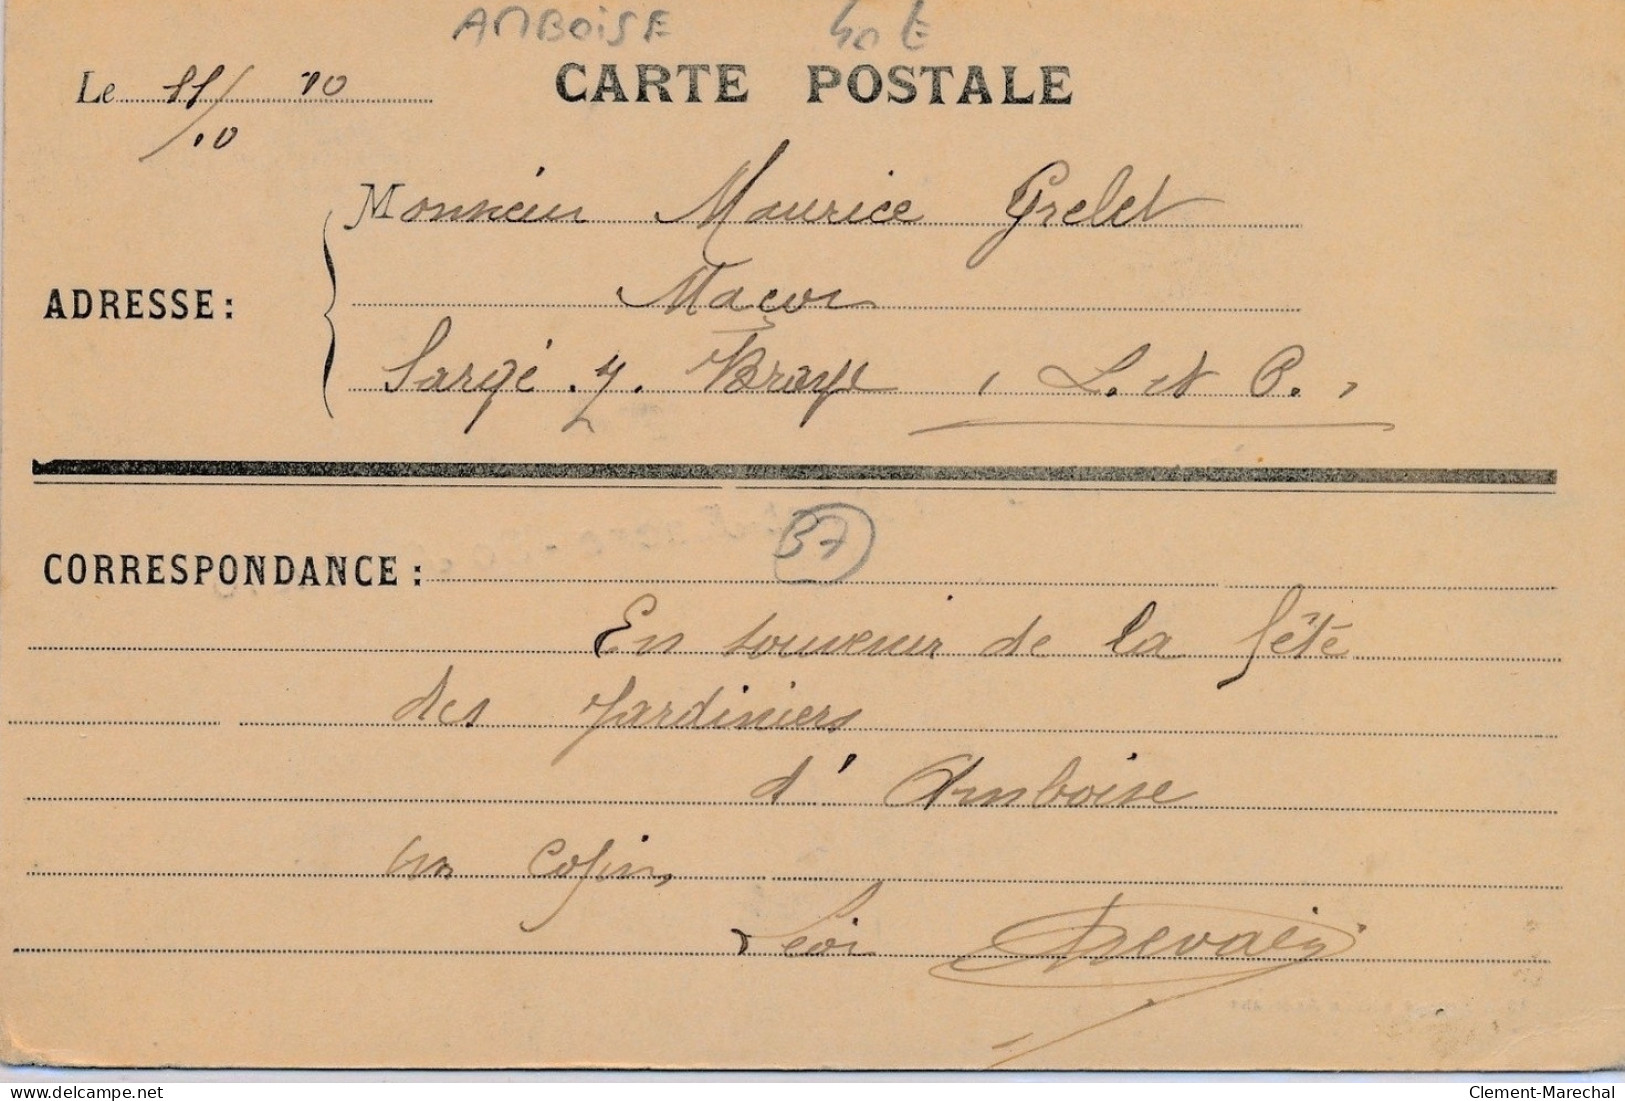 AMBOISE 40 E
CARTE POSTALE
Le 11/10 10
Monsieur Maurice Grelet
ADRESSE :
Maçon
Sargé s/ Braye ( L. et C. )
37
CORRESPONDANCE :
En souvenir de la fête
des Jardiniers
d'Amboise
un copin,
Léon
Clement-Marechal